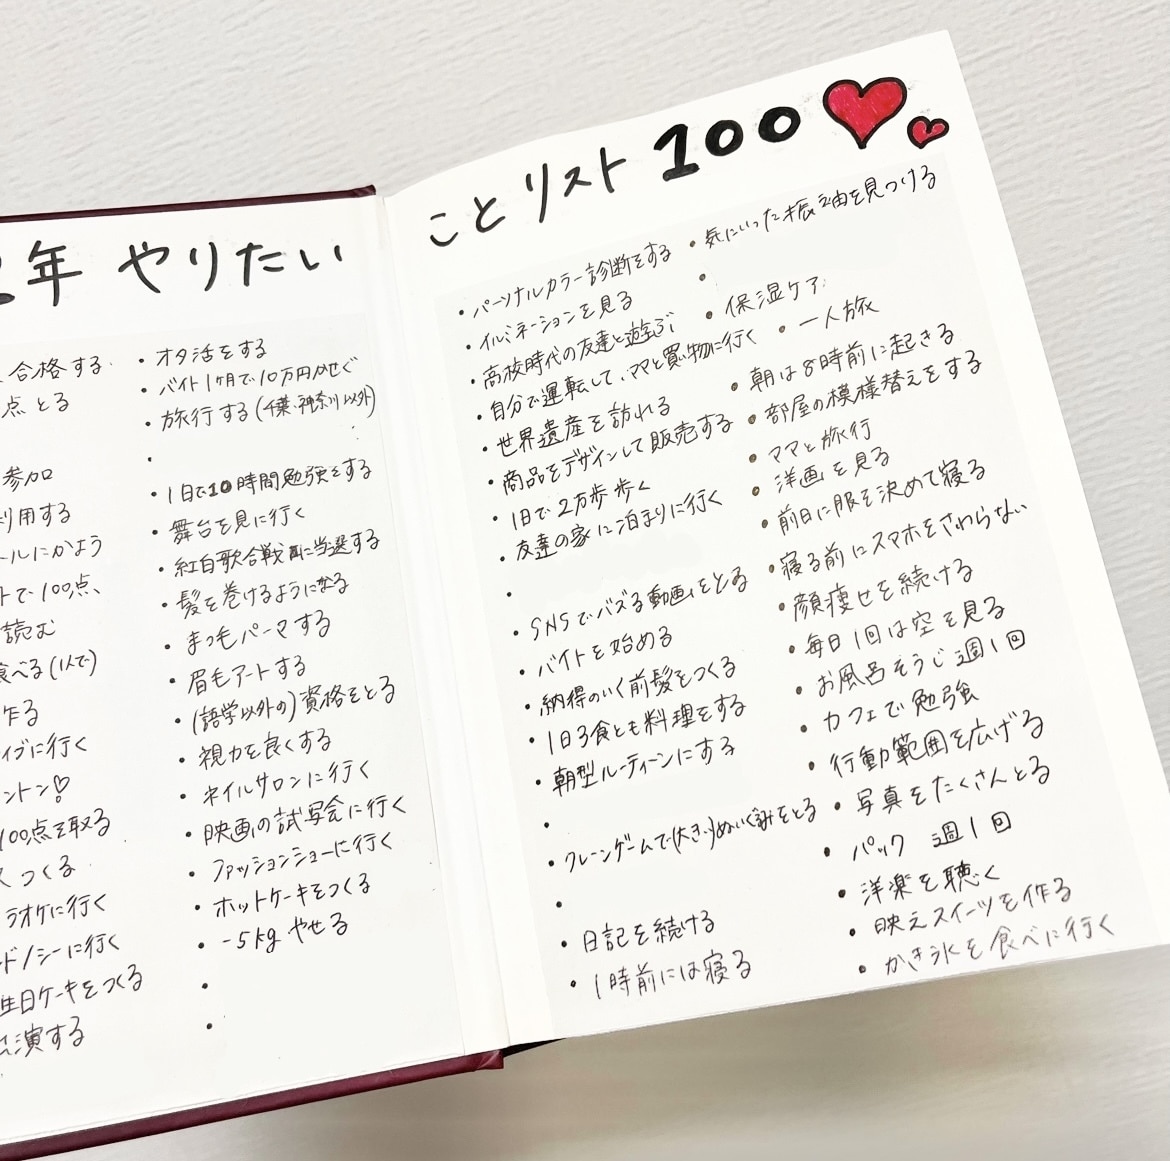 年 やりたい
合格する
点とる
参加
利用する
ールにかよう
トで100点、
読む
食べる(1人で)
作る
イブに行く
ントン♡
100点を取る
くつくる
ラオケに行く
ドノシーに行く
生日ケーキをつくる
演する
・オタ活をする
・バイト1ヶ月で10万円かせぐ
・旅行する(千葉・神奈川以外)
・
・1日で10時間勉強をする
・舞台を見に行く
・紅白歌合戦に当選する
・髪を巻けるようになる
・まつ毛パーマする
・眉毛アートする
・(語学以外の)資格をとる
・視力を良くする
・ネイルサロンに行く
・映画の試写会に行く
・ファッションショーに行く
・ホットケーキをつくる
・-5kgやせる
・
・
ことリスト100
・パーソナルカラー診断をする
・イルミネーションを見る
・高校時代の友達と遊ぶ
・自分で運転して、ママと買い物に行く
・世界遺産を訪れる
・商品をデザインして販売する
・1日で2万歩歩く
・友達の家に泊まりに行く
・
・SNSでバズる動画をとる
・バイトを始める
・納得のいく前髪をつくる
・1日3食とも料理をする
・朝型ルーティーンにする
・
・クレーンゲームで(大きい)ぬいぐるみをとる
・
・日記を続ける
・1時前には寝る
・気にいった振袖を見つける
・
・保湿ケア
・一人旅
・朝は8時前に起きる
・部屋の模様替えをする
・ママと旅行
・洋画を見る
・前日に服を決めて寝る
・寝る前にスマホをさわらない
・顔痩せを続ける
・毎日1回は空を見る
・お風呂そうじ週1回
・カフェで勉強
・行動範囲を広げる
・写真をたくさんとる
・パック 週1回
・洋楽を聴く
・映えスイーツを作る
・かき氷を食べに行く